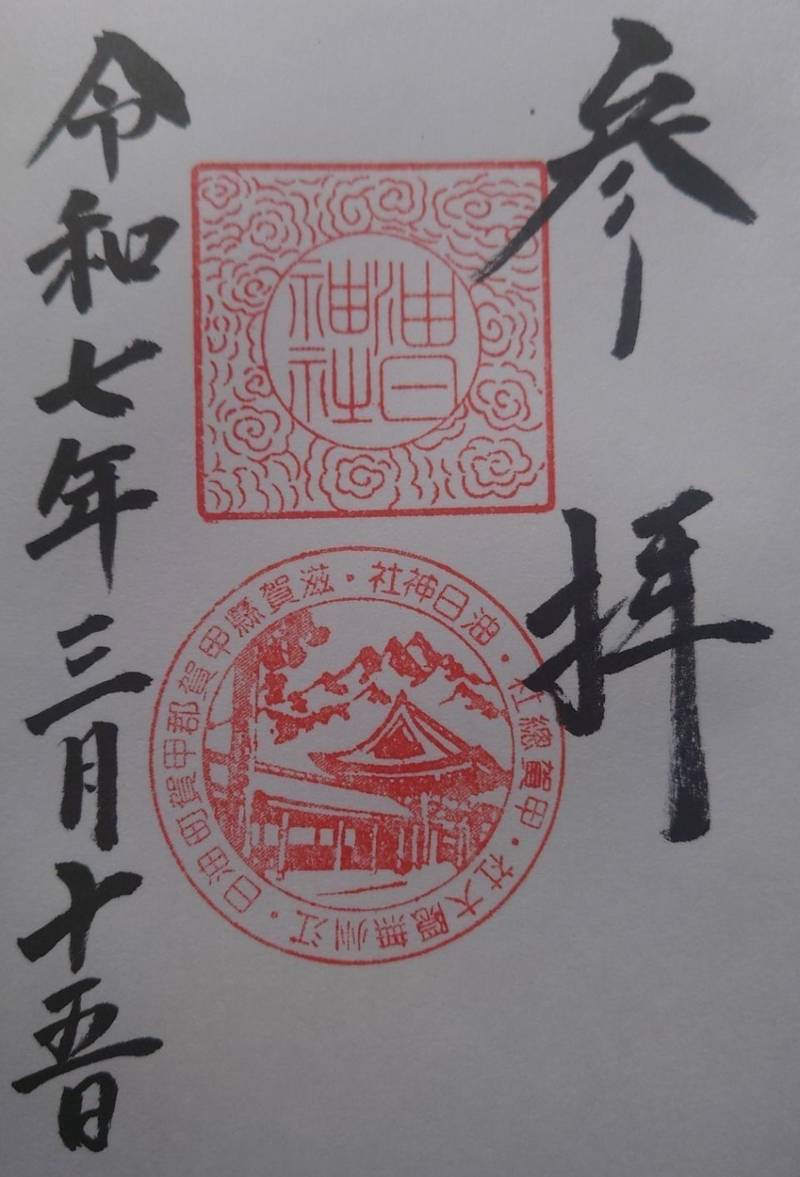 参拝
油日
神社
油日神社・滋賀縣甲賀郡甲賀町油日・江州無隠大社・甲賀總社・
令和七年三月十五日